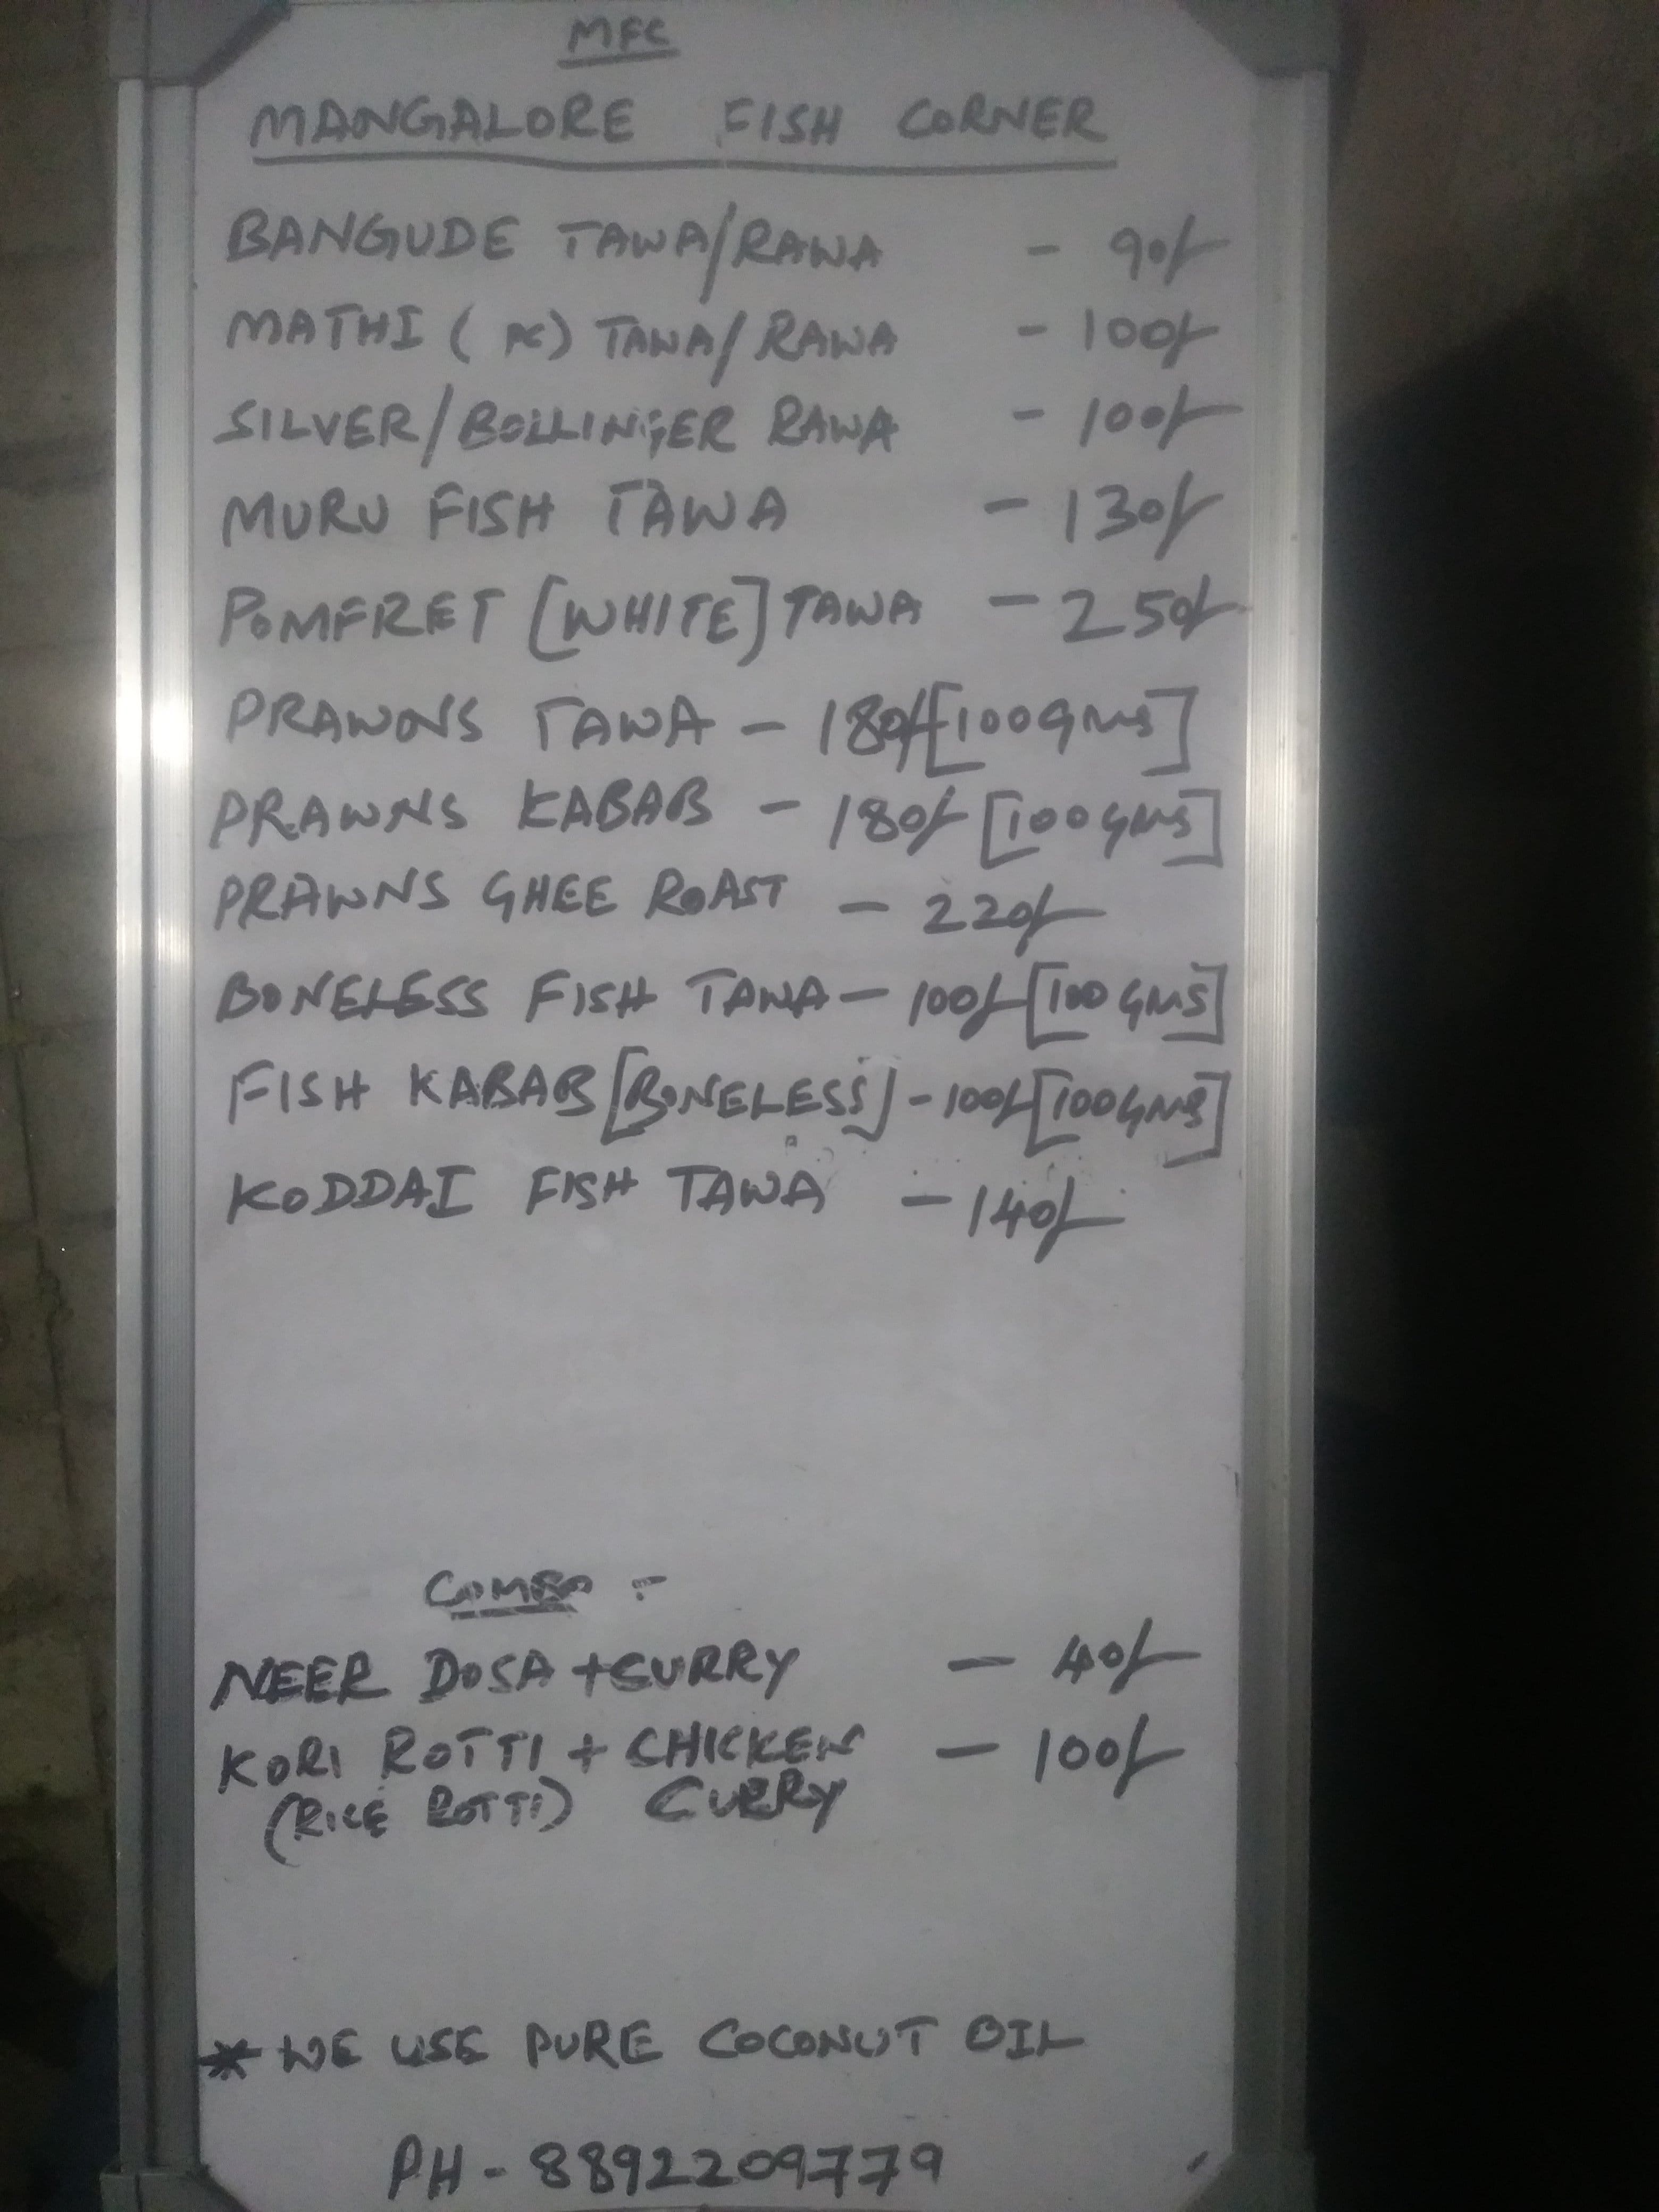 MFC
MANGALORE FISH CORNER
BANGUDE TAWA/RAWA - 90/-
MATHI ( ) TAWA/RAWA - 100/-
SILVER/BOLLINGER RAWA - 100/-
MURU FISH TAWA - 130/-
POMFRET [WHITE] TAWA - 250/-
PRAWNS TAWA - 180/- [100gms]
PRAWNS KABAB - 180/- [100gms]
PRAWNS GHEE ROAST - 220/-
BONELESS FISH TAWA - 100/- [100 GMS]
FISH KABAB [BONELESS] - 100/- [100GMS]
KODDAI FISH TAWA - 140/-
COMBO :-
NEER DOSA + CURRY - 40/-
KORI ROTTI + CHICKEN - 100/-
(RICE ROTTI) CURRY
* WE USE PURE COCONUT OIL
PH - 8892209779